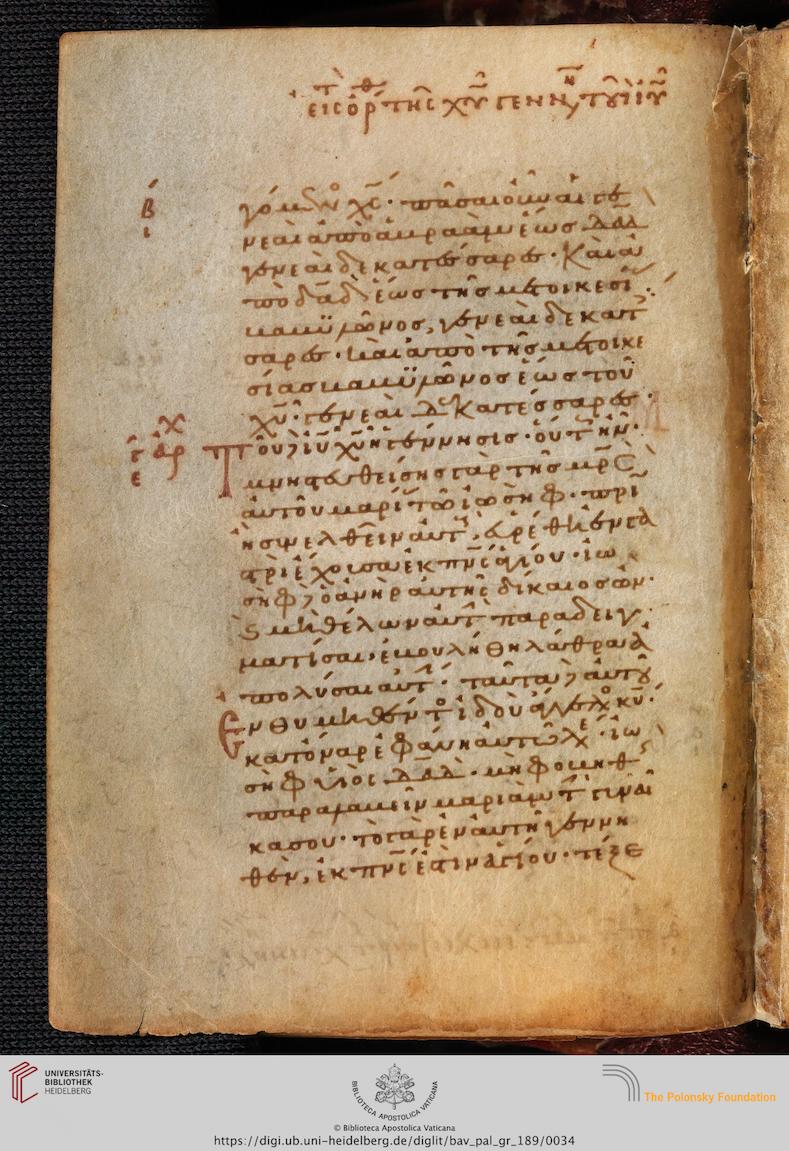 β
ι
γόμεν ὁ χς· πᾶσαι οὖν αἱ γε
νεαὶ ἀπὸ ἀβραὰμ ἕως δαδ
γενεαὶ δεκατέσσαρες· Καὶ ἀ
πὸ δαδ ἕως τῆς μετοικεσί
βαβυλῶνος, γενεαὶ δεκατ
σαρες· καὶ ἀπὸ τῆς μετοικε
σίας βαβυλῶνος ἕως τοῦ
χυ· γενεαὶ δεκατέσσαρες·
Τοῦ δὲ ιυ χυ ἡ γέννησις· οὕτ ἦν·
μνηστευθείσης γὰρ τῆς μρς
αὐτοῦ μαρί τῶ ἰωσὴφ· πρὶ
ἢ συνελθεῖν αὐτ, εὑρέθη ἐν γα
στρὶ ἔχουσα ἐκ πνς ἁγίου· ἰω
σὴφ δὲ ὁ ἀνὴρ αὐτῆς δίκαιος ὢν·
ϗ μὴ θέλων αὐτ παραδειγ
ματίσαι, ἐβουλήθη λάθρα ἀ
πολῦσαι αὐτ· ταῦτα δὲ αὐτοῦ
Ἐνθυμηθέντ ἰδοὺ ἄγγελο κυ·
κατόναρ ἐφάνη αὐτῶ λε· ἰω
σὴφ υἱὸς δαδ· μὴ φοβηθ
παραλαβεῖν μαριὰμ τ γυναῖ
κα σου· τὸ γὰρ ἐν αὐτῆ γεννη
θὲν, ἐκ πνς ἐστιν ἁγίου· τέξε
UNIVERSITÄTS-
BIBLIOTHEK
HEIDELBERG
BIBLIOTHECA APOSTOLICA VATICANA
The Polonsky Foundation
© Biblioteca Apostolica Vaticana
https://digi.ub.uni-heidelberg.de/diglit/bav_pal_gr_189/0034